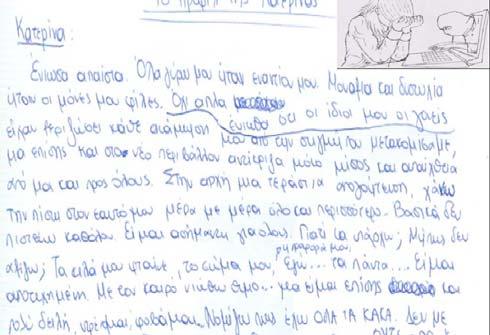 Το προφίλ της Κατερίνας
Κατερίνα:
Ένιωθα απαίσια. Όλα γύρω μου ήταν εναντίον μου. Μοναξιά και δυστυχία
ήταν οι μόνες μου φίλες. Όχι απλά ένιωθα ότι οι ίδιοι μου οι γονείς
είχαν ξεριζώσει κάθε ανάμνηση μου από την στιγμή που μετακομίσαμε,
μα επίσης και στο νέο περιβάλλον αντίκριζα μόνο μίσος και απέχθεια
από μα και προς όλους. Στην αρχή μια τεράστια απογοήτευση, χάνω
την πίστη στον εαυτό μου μέρα με μέρα όλο και περισσότερο. Βασικά δεν
πιστεύω καθόλου. Είμαι ασήμαντη για όλους. Γιατί να υπάρχω; Μήπως δεν
αξίζω; Τα κιλά μου φταίνε, το σώμα μου, η συμπεριφορά μου, εγώ... τα πάντα... Είμαι
αποτυχημένη. Με τον καιρό νιώθω θυμό... μα είμαι επίσης και
πολύ δειλή, ντρέπομαι, φοβάμαι. Νομίζω πως έχω ΟΛΑ ΤΑ ΚΑΚΑ. Δεν με